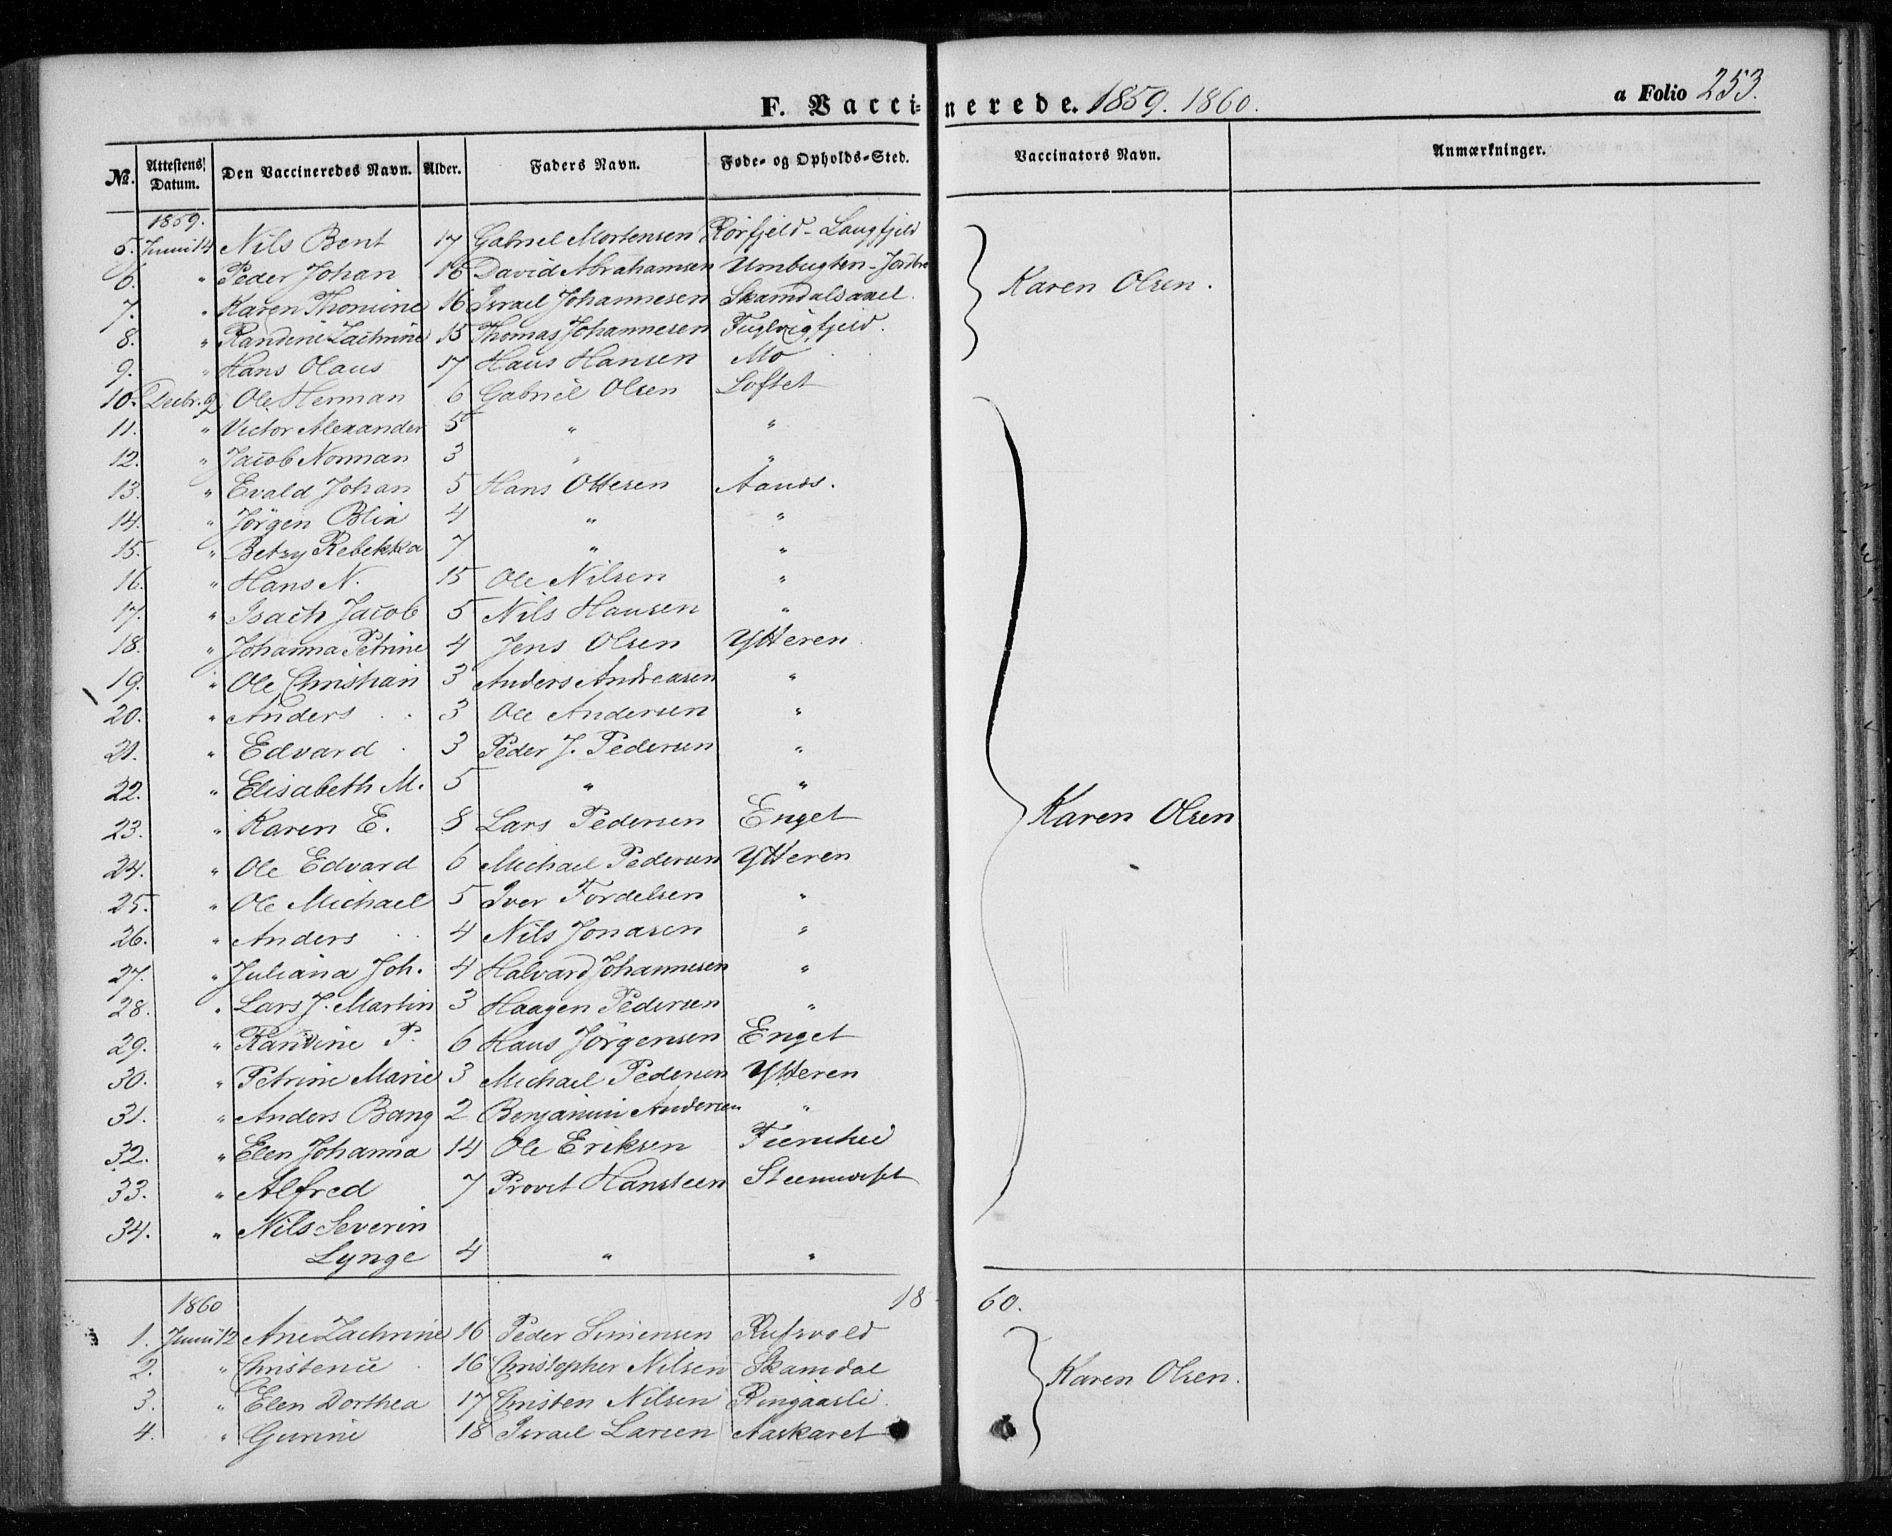 F. Vaccinerede. 1859. 1860. a Folio 253.
No. Attestens Datum. Den Vaccineredes Navn. Alder. Faders Navn. Føde- og Opholds-Sted. Vaccinators Navn. Anmærkninger.
1859.
5. Junii 14 Nils Bent 17 Gabriel Mortensen Rørfjeld - Langfjeld
6. " Peder Johan 16 David Abrahamsen Umbugten - Jordbro
7. " Karen Thomine 16 Israel Johannesen Skamdalsaxel. Karen Olsen.
8. " Randine Zachrine 15 Thomas Johannesen Fuglvigfjeld.
9. " Hans Olaus 17 Hans Hansen Mo
10. Decbr. 9 Ole Herman 6 Gabriel Olsen Loftet
11. " Victor Alexander 5 " "
12. " Jacob Norman 3 " "
13. " Evald Johan 5 Hans Ottesen Aanæs.
14. " Jørgen Blix 4 " "
15. " Betzy Rebekka 7 " "
16. " Hans N. 15 Ole Nilsen "
17. " Isach Jacob 5 Nils Hansen "
18. " Johanna Petrine 4 Jens Olsen Ytteren
19. " Ole Christian 3 Anders Andreasen "
20. " Anders 3 Ole Andersen "
21. " Edvard 3 Peder J. Pedersen "
22. " Elisabeth M. 5 " "
23. " Karen E. 8 Lars Pedersen Enget Karen Olsen
24. " Ole Edvard 6 Michael Pedersen Ytteren
25. " Ole Michael 5 Iver Fordelsen "
26. " Anders 4 Nils Jonasen "
27. " Juliana Joh. 4 Halvard Johannesen "
28. " Lars J. Martin 3 Haagen Pedersen "
29. " Randine P. 6 Hans Jørgensen Enget
30. " Petrine Marie 3 Michael Pedersen Ytteren
31. " Anders Bang 2 Benjamin Andersen "
32. " Elen Johanna 14 Ole Eriksen
33. " Alfred 7 Provst Hansteen
34. " Nils Severin
Lynge 4 " "
1860 1860.
1. Junii 12 Ane Zachrine 16 Peder Simensen Rufsvold
2. " Christense 16 Christopher Nilsen Skamdal Karen Olsen.
3. " Elen Dorthea 17 Christen Nilsen Ringaasli
4. " Gurine 18 Israel Larsen Aaskaret